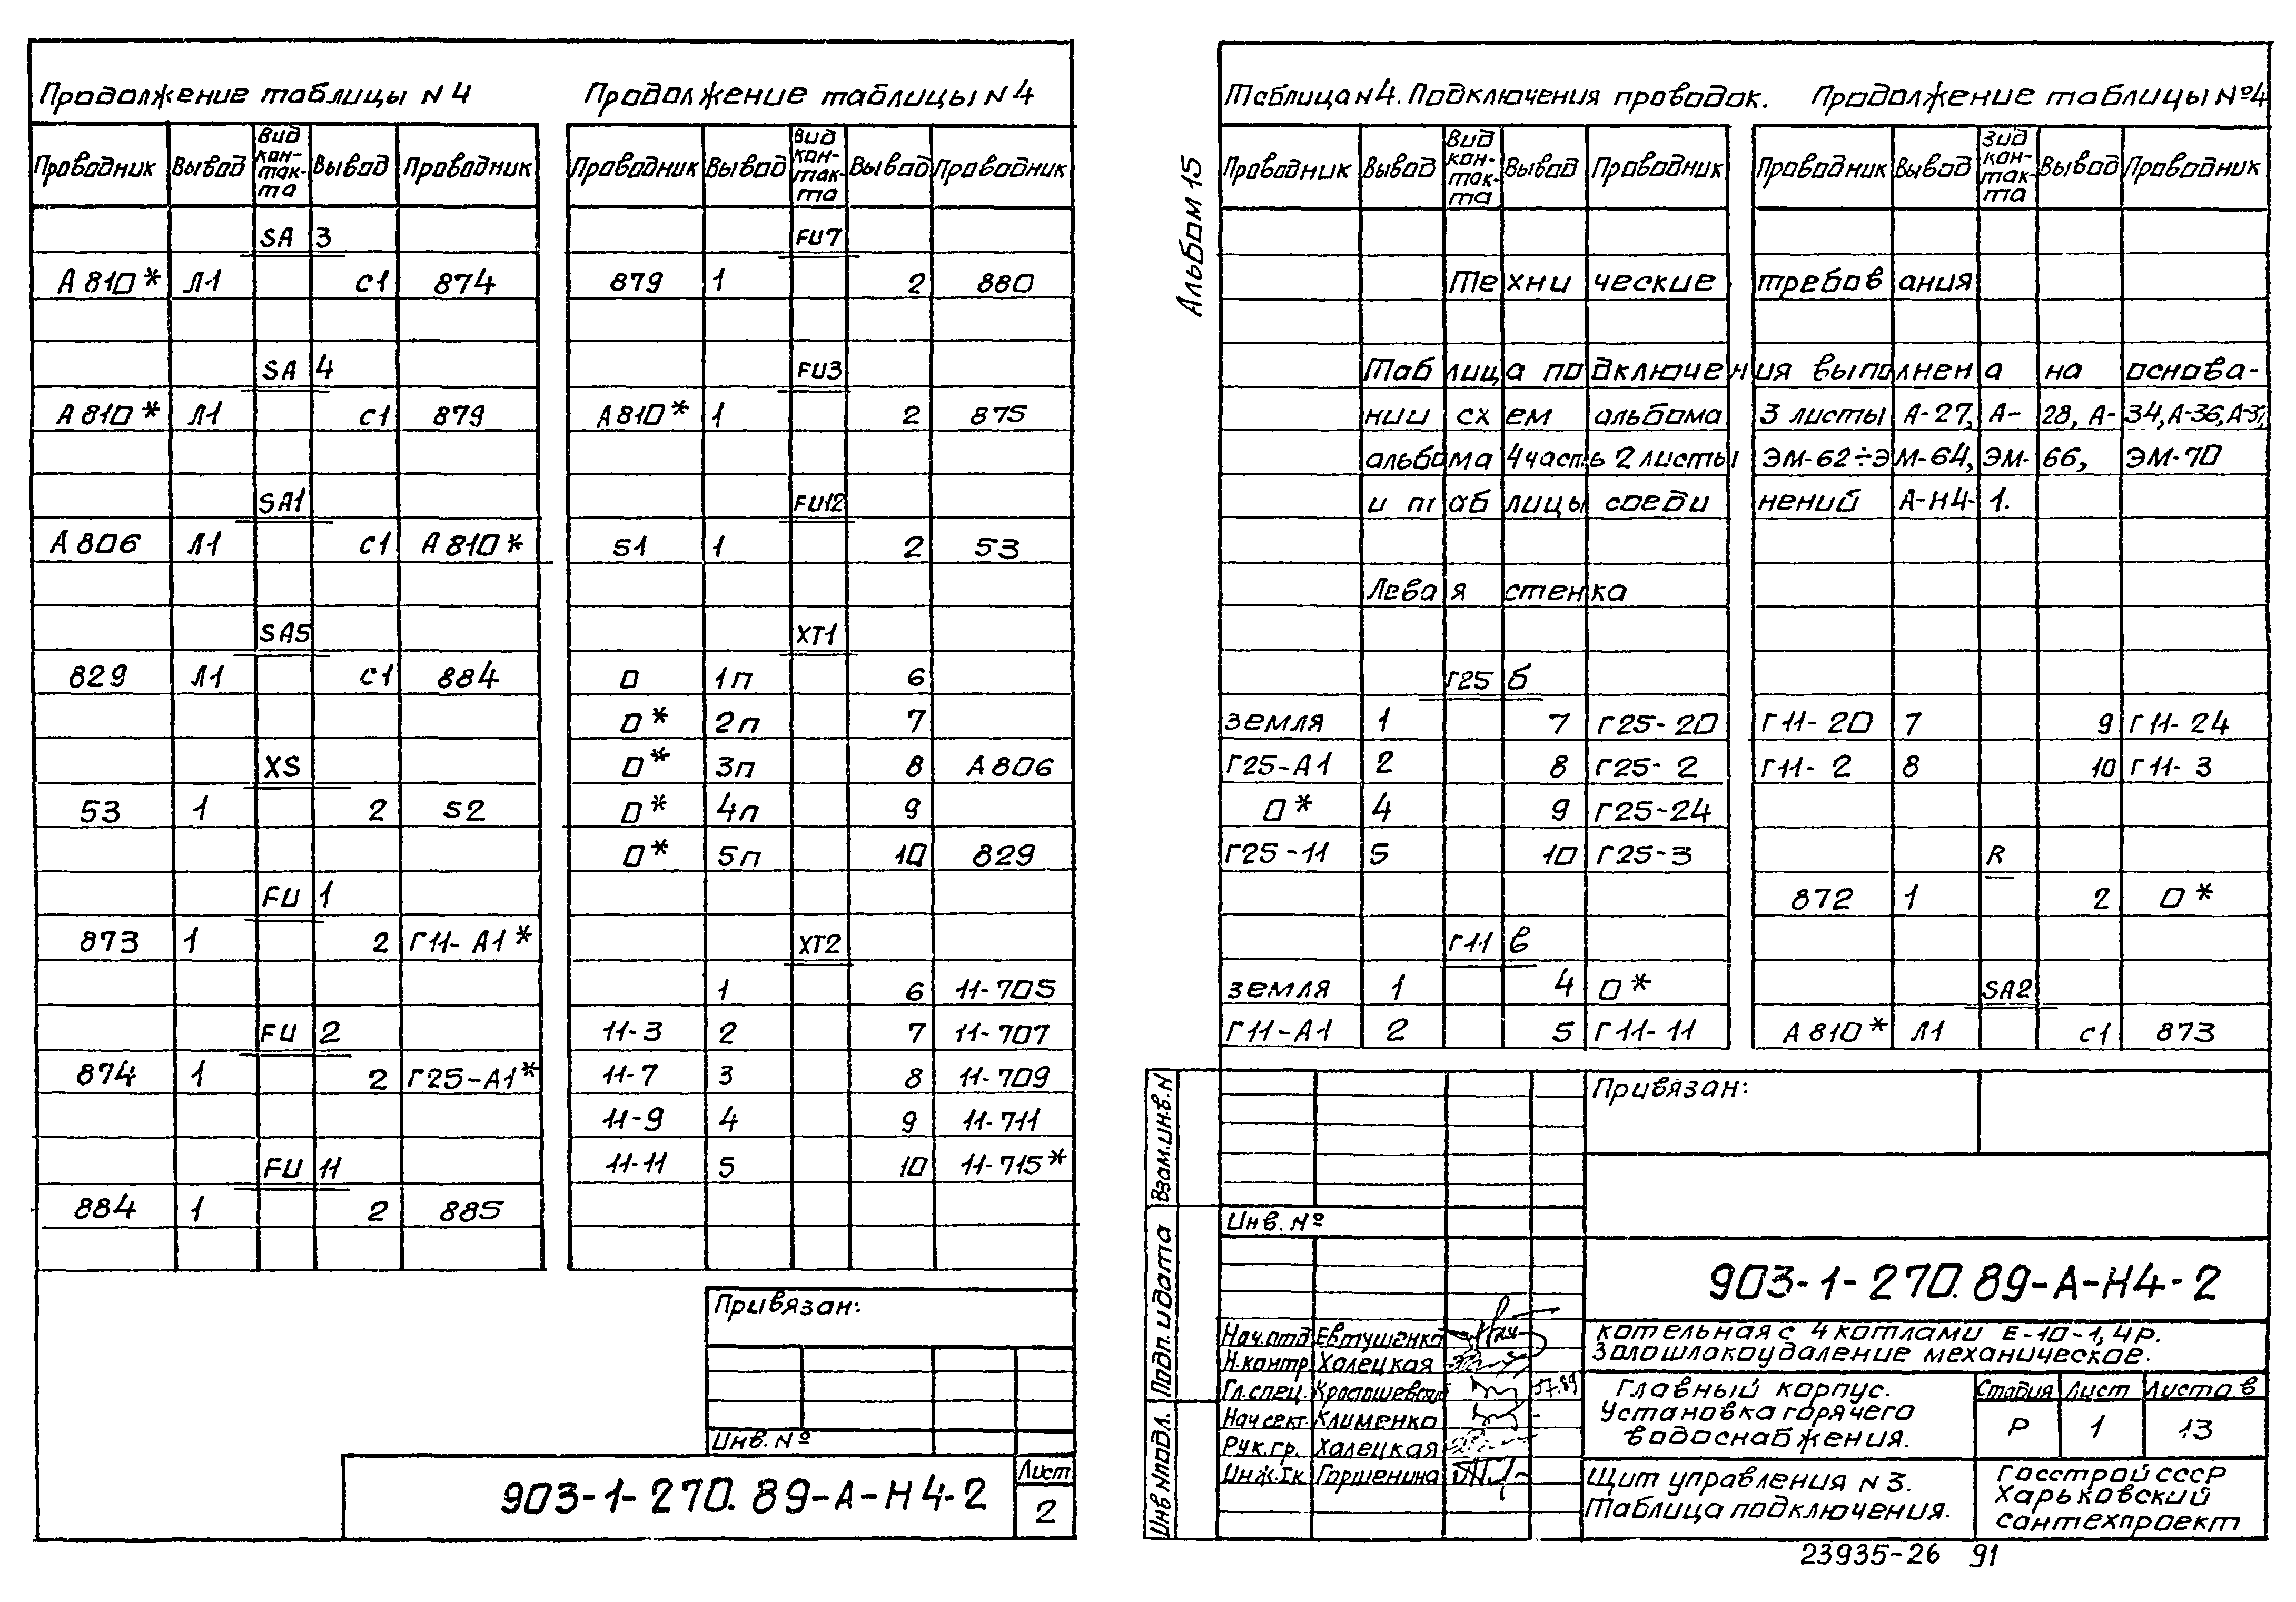 Продолжение таблицы N 4
Проводник Вывод Вид кон-так-та Вывод Проводник
SA 3
А 810* Л1 с1 874
SA 4
А 810* Л1 с1 879
SA1
А 806 Л1 с1 А 810*
SA5
829 Л1 с1 884
XS
53 1 2 52
FU 1
873 1 2 Г11-А1*
FU 2
874 1 2 Г25-А1*
FU 11
884 1 2 885
Продолжение таблицы N 4
Проводник Вывод Вид кон-так-та Вывод Проводник
FU7
879 1 2 880
FU3
А 810* 1 2 875
FU12
51 1 2 53
XT1
0 1п 6
0* 2п 7
0* 3п 8 А 806
0* 4п 9
0* 5п 10 829
XT2
1 6 11-705
11-3 2 7 11-707
11-7 3 8 11-709
11-9 4 9 11-711
11-11 5 10 11-715*
Привязан:
Инв. №
903-1-270.89-А-Н4-2
Лист
2
Альбом 15
Таблица N4. Подключения проводок. Продолжение таблицы №4
Проводник Вывод Вид кон-так-та Вывод Проводник Проводник Вывод Вид кон-так-та Вывод Проводник
Технические требования
Таблица подключения выполнена на основа-
нии схем альбома 3 листы А-27, А-28, А-34, А-36, А-37,
альбома 4 часть 2 листы ЭМ-62÷ЭМ-64, ЭМ-66, ЭМ-70
и таблицы соединений А-Н4-1.
Левая стенка
Г25 б
земля 1 7 Г25-20
Г25-А1 2 8 Г25-2
0* 4 9 Г25-24
Г25-11 5 10 Г25-3
Г11 в
земля 1 4 0*
Г11-А1 2 5 Г11-11
Г11-20 7 9 Г11-24
Г11-2 8 10 Г11-3
R
872 1 2 0*
SA2
А 810* Л1 с1 873
Взам.инв.N
Подп. и дата
Инв N подл.
Привязан:
Инв. №
903-1-270.89-А-Н4-2
Нач.отд Евтушенко
Н.контр Халецкая
Гл.спец.
Нач.сект. Клименко
Рук.гр. Халецкая
Инж.Iк Горшенина
котельная с 4 котлами Е-10-1,4Р.
Золошлакоудаление механическое.
Главный корпус.
Установка горячего
водоснабжения.
Стадия Лист Листов
Р 1 13
Щит управления N 3.
Таблица подключения.
Госстрой СССР
Харьковский
сантехпроект
23935-26 91